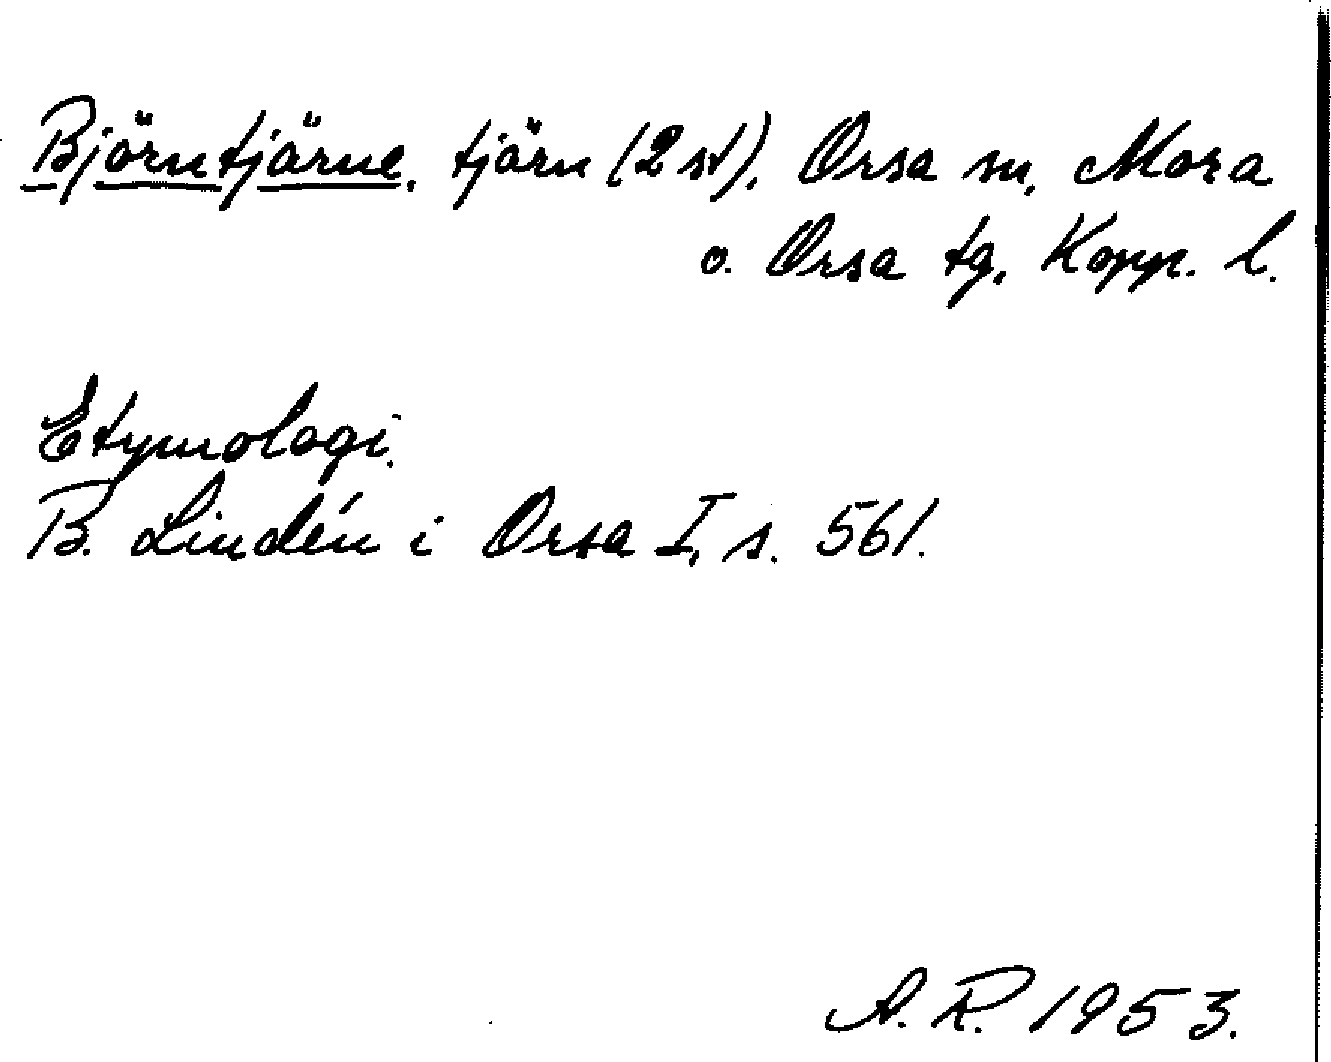 Björntjärne, tjärn (2 st), Orsa sn, Mora
o. Orsa tg, Kopp. l.
Etymologi.
B. Lindén i Orsa I, s. 561.
A. R. 1953.